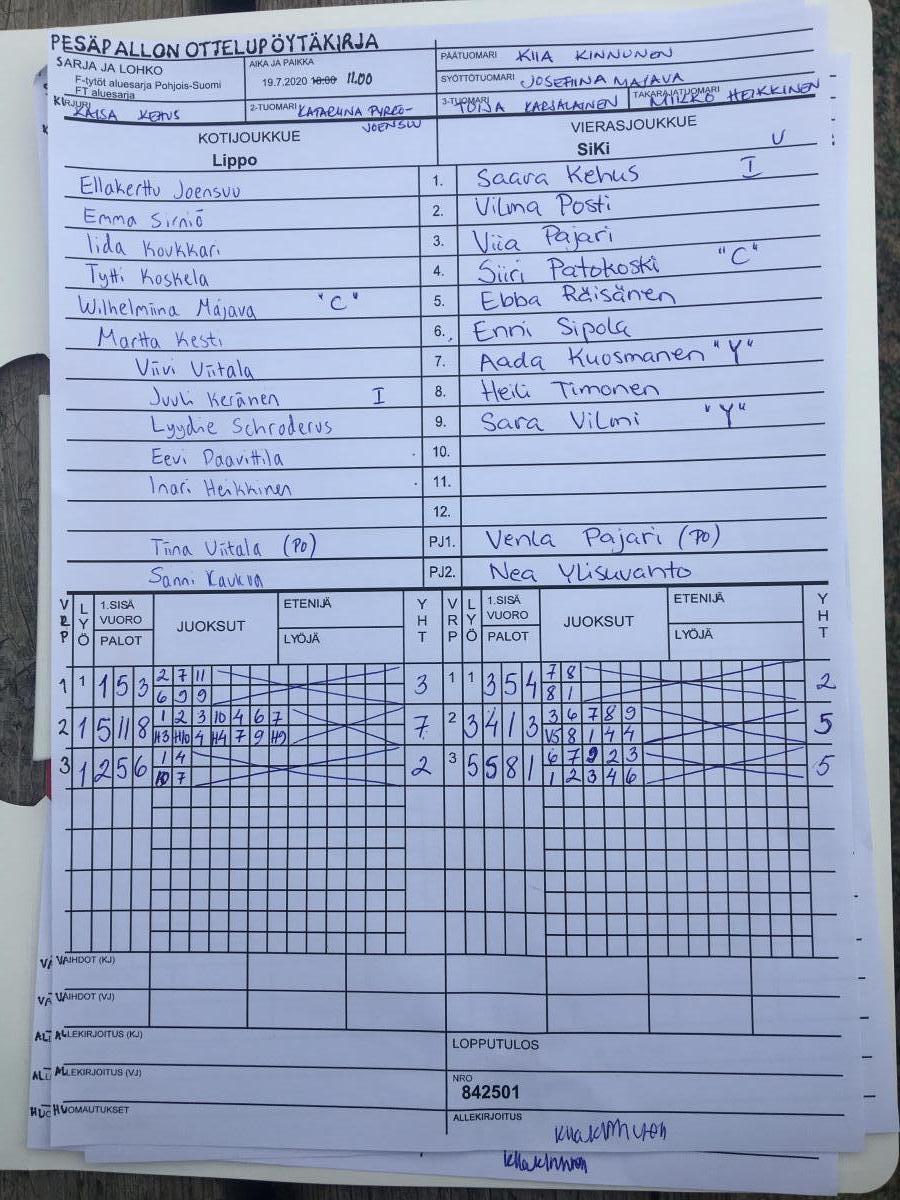 PESÄPALLON OTTELUPÖYTÄKIRJA
SARJA JA LOHKO
F-tytöt aluesarja Pohjois-Suomi
FT aluesarja
AIKA JA PAIKKA
19.7.2020 10:00 11.00
PÄÄTUOMARI KIIA KINNUNEN
SYÖTTÖTUOMARI JOSEFIINA MAJAVA
KIRJURI KAISA KEHUS
2-TUOMARI KATARIINA PYREO-
JOENSUU
3-TUOMARI TOIJA KARJALAINEN
TAKARAJATUOMARI MIKKO HEIKKINEN
KOTIJOUKKUE
Lippo
VIERASJOUKKUE
SiKi U
Ellakerttu Joensuu 1. Saara Kehus I
Emma Sirniö 2. Vilma Posti
Iida Koukkari 3. Viia Pajari
Tytti Koskela 4. Siiri Patokoski "C"
Wilhelmiina Majava "C" 5. Ebba Räisänen
Martta Kesti 6. Enni Sipola
Viivi Viitala 7. Aada Kuosmanen "Y"
Juuli Keränen I 8. Heili Timonen
Lyydie Schroderus 9. Sara Vilmi "Y"
Eevi Daavittila 10.
Inari Heikkinen 11.
12.
Tiina Viitala (PO) PJ1. Venla Pajari (PO)
Sanni Kaukua PJ2. Nea Ylisuvanto
VRP LYÖ 1.SISÄ VUORO PALOT JUOKSUT ETENIJÄ LYÖJÄ YHT VRP LYÖ 1.SISÄ VUORO PALOT JUOKSUT ETENIJÄ LYÖJÄ YHT
1 1 1 5 3 2 7 11 3 1 1 3 5 4 7 8 2
6 9 9 8 1
2 1 5 11 8 1 2 3 10 4 6 7 7 2 3 4 1 3 3 6 7 8 9 5
H3 H10 4 H4 7 9 H9 V5 8 1 4 4
3 1 2 5 6 1 4 2 3 5 5 8 1 6 7 9 2 3 5
10 7 1 2 3 4 6
VAIHDOT (KJ)
VAIHDOT (VJ)
ALLEKIRJOITUS (KJ)
LOPPUTULOS
ALLEKIRJOITUS (VJ)
NRO
842501
HUOMAUTUKSET
ALLEKIRJOITUS